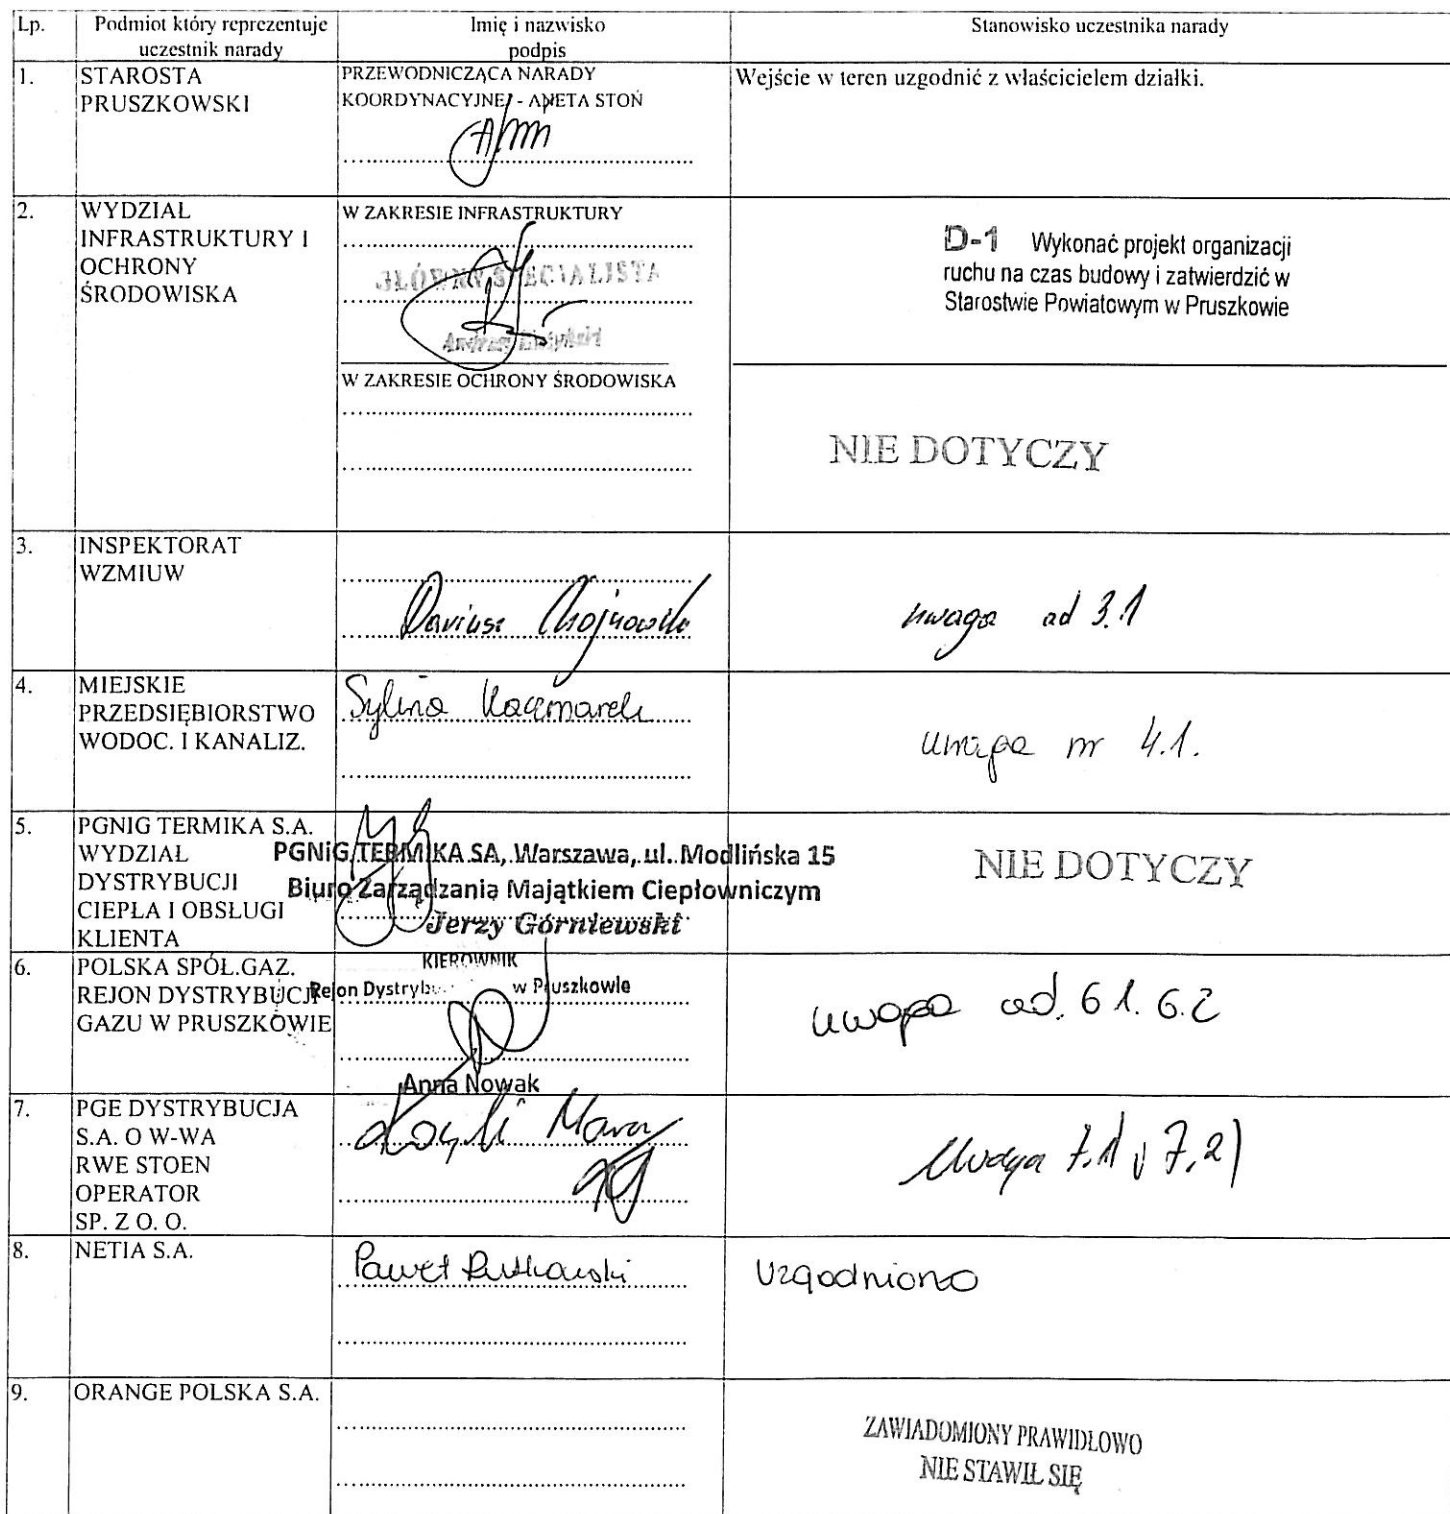 Lp.
Podmiot który reprezentuje
uczestnik narady
Imię i nazwisko
podpis
Stanowisko uczestnika narady
1.
STAROSTA
PRUSZKOWSKI
PRZEWODNICZĄCA NARADY
KOORDYNACYJNEJ - ANETA STOŃ
Wejście w teren uzgodnić z właścicielem działki.
2.
WYDZIAŁ
INFRASTRUKTURY I
OCHRONY
ŚRODOWISKA
W ZAKRESIE INFRASTRUKTURY
GŁÓWNY SPECJALISTA
D-1 Wykonać projekt organizacji
ruchu na czas budowy i zatwierdzić w
Starostwie Powiatowym w Pruszkowie
W ZAKRESIE OCHRONY ŚRODOWISKA
NIE DOTYCZY
3.
INSPEKTORAT
WZMIUW
Dariusz Chojnowski
uwaga ad 3.1
4.
MIEJSKIE
PRZEDSIĘBIORSTWO
WODOC. I KANALIZ.
Kaczmarek
uwaga nr 4.1.
5.
PGNIG TERMIKA S.A.
WYDZIAŁ
DYSTRYBUCJI
CIEPŁA I OBSŁUGI
KLIENTA
PGNiG TERMIKA SA, Warszawa, ul. Modlińska 15
Biuro Zarządzania Majątkiem Ciepłowniczym
Jerzy Górniewski
NIE DOTYCZY
6.
POLSKA SPÓŁ.GAZ.
REJON DYSTRYBUCJI
GAZU W PRUSZKOWIE
KIEROWNIK
Rejon Dystrybu w Pruszkowie
Anna Nowak
uwaga ad. 6 1. 6.2
7.
PGE DYSTRYBUCJA
S.A. O W-WA
RWE STOEN
OPERATOR
SP. Z O. O.
Uwaga 7.1 i 7.2)
8.
NETIA S.A.
Paweł Rutkowski
Uzgodniono
9.
ORANGE POLSKA S.A.
ZAWIADOMIONY PRAWIDŁOWO
NIE STAWIŁ SIĘ